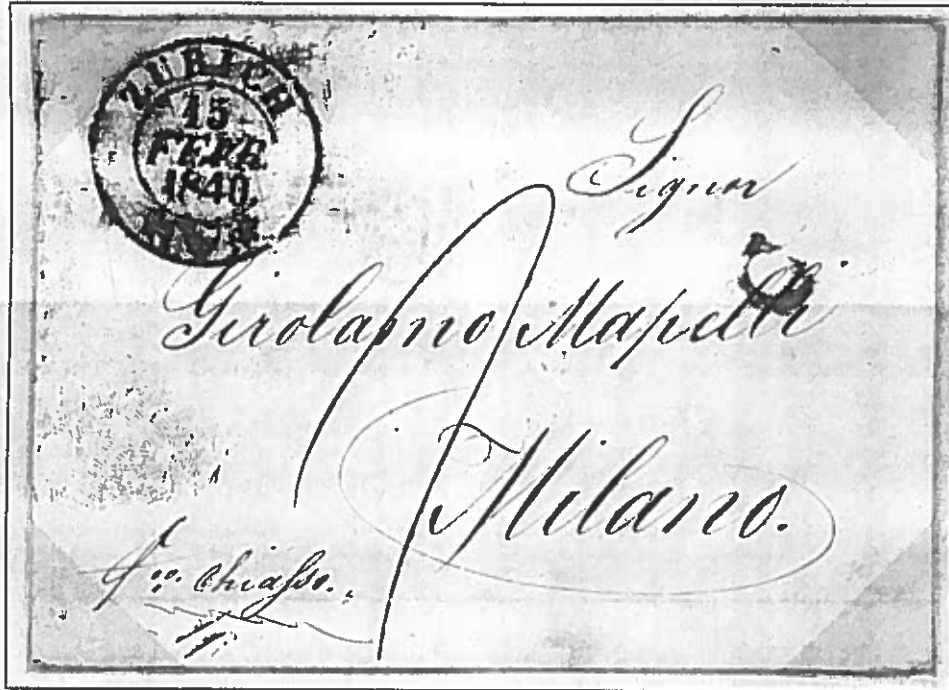 ZURICH
15
FEBR.
1840
Signor
Girolamo Mapelli
Milano.
fco. Chiasso.